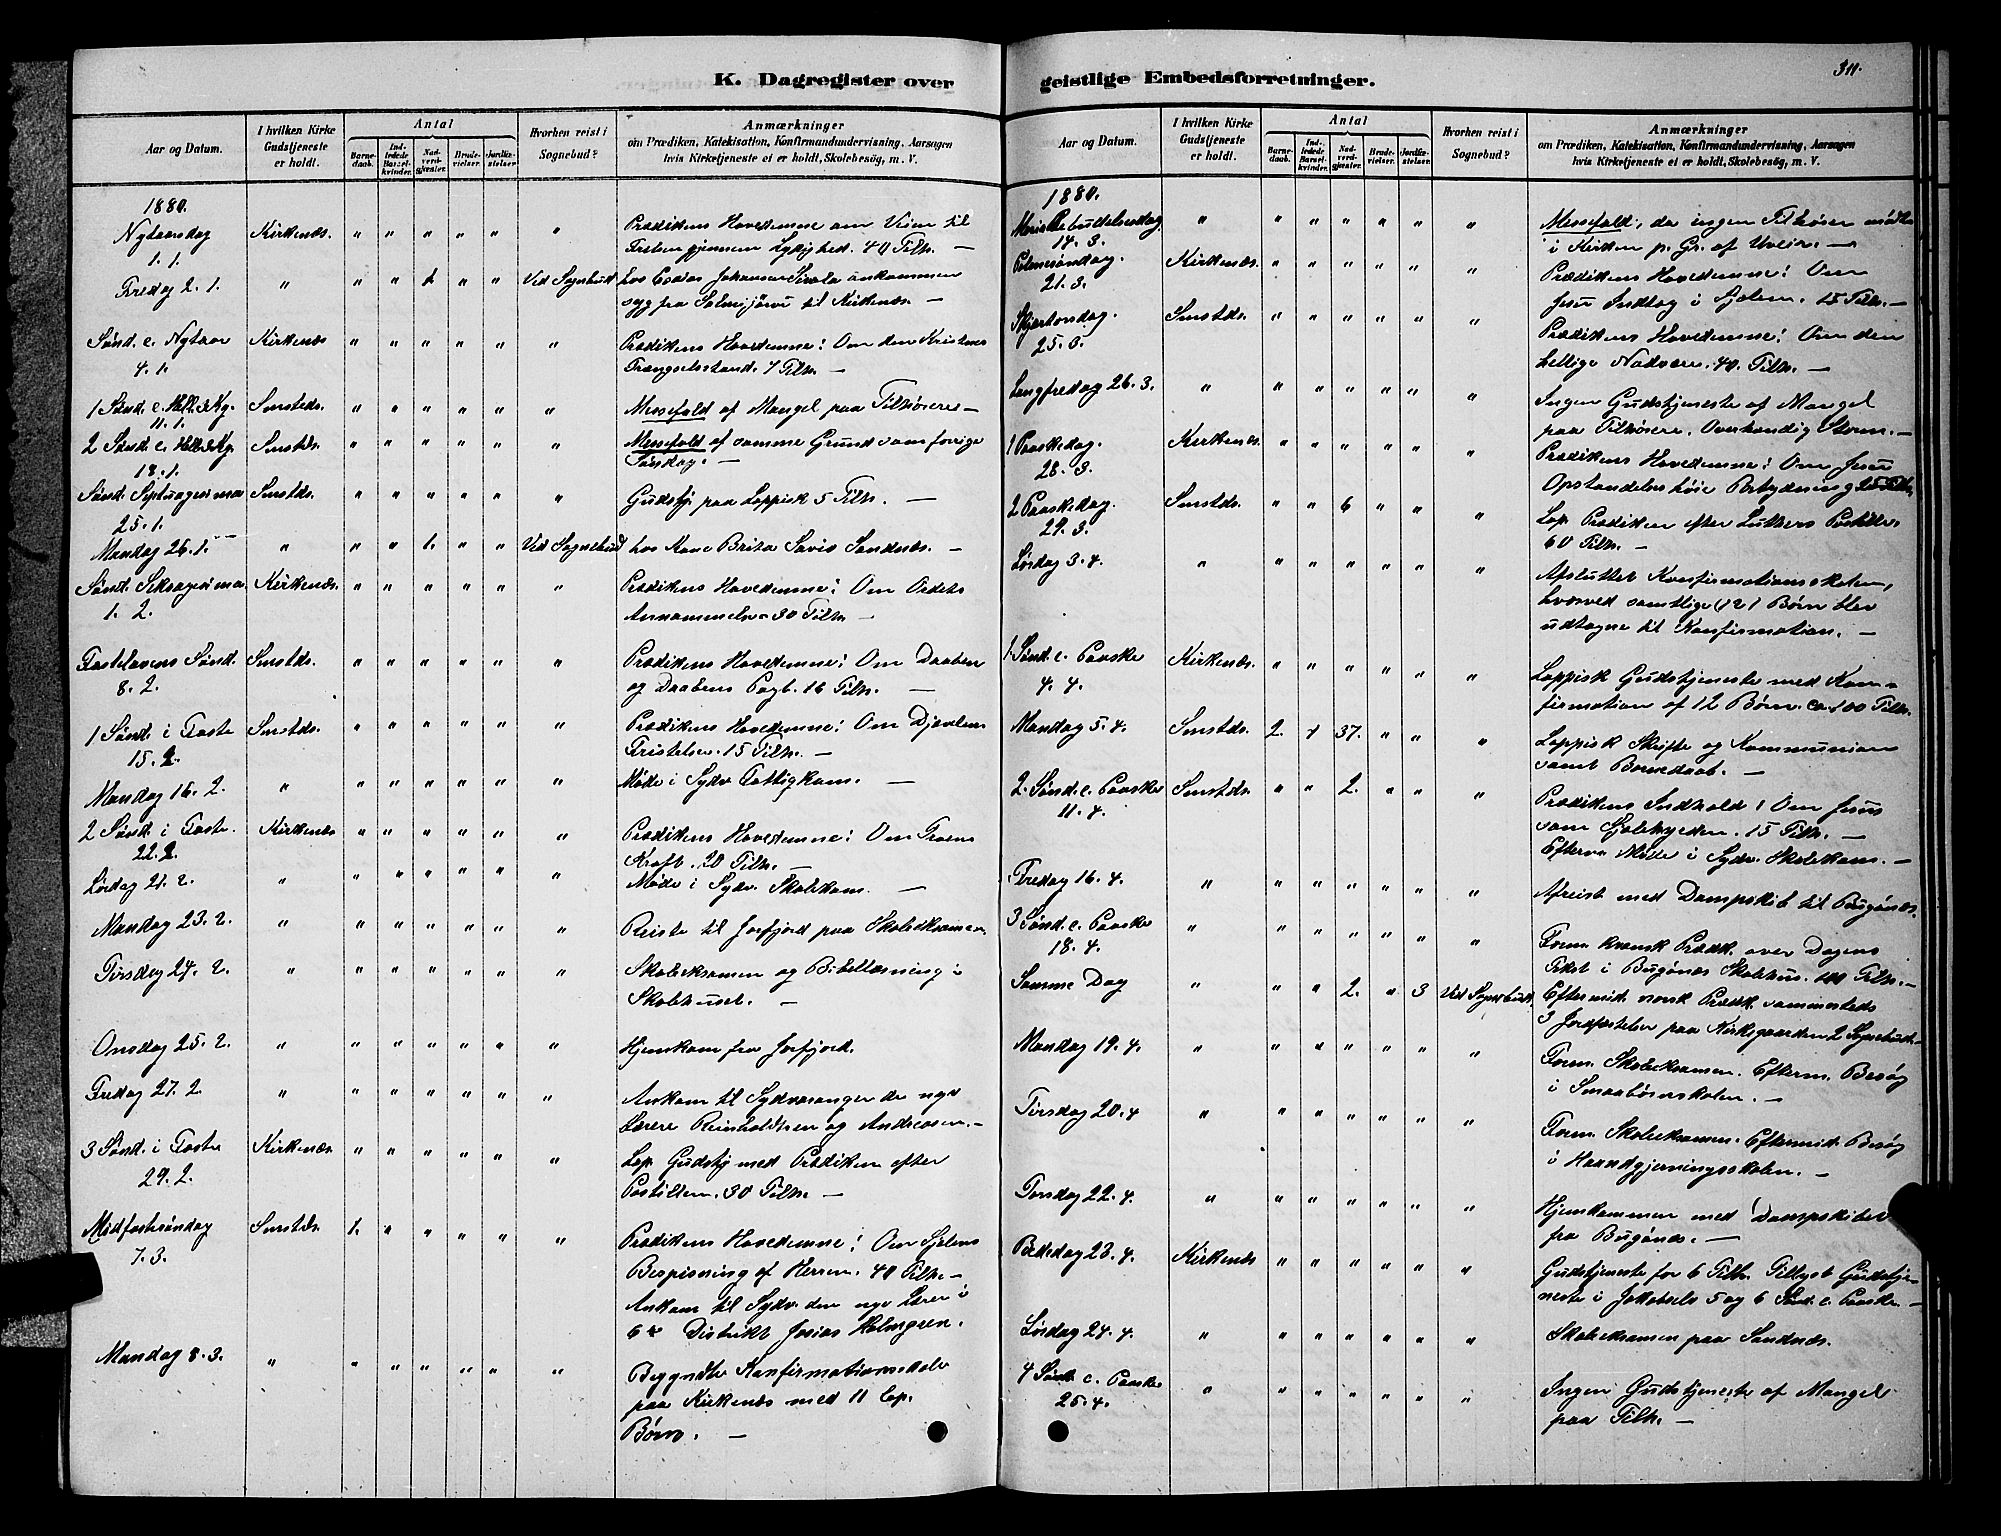 K. Dagregister over
Aar og Datum.
I hvilken Kirke Gudstjeneste er holdt.
Antal
Barnedaab.
Indledede Barselkvinder.
Nadverdgjester.
Brudevielser.
Jordfæstelser.
Hvorhen reist i Sognebud?
Anmærkninger
om Prædiken, Katekisation, Konfirmandundervisning, Aarsagen
hvis Kirketjeneste ei er holdt, Skolebesøg, m. V.
1880.
Nytaarsdag Kirkenæs. " " " " " " Prædikens Hovedemne om Veien til
1.1. Frelsen gjennem Lydighed. 40 Tilh. —
Fredag 2.1. " " " 1. " " Ved Sognebud hos Johansen ankommen
syg fra Salmijärvi til Kirkenæs. —
Sønd. e. Nytaar Kirkenæs " " " " " " Prædikens Hovedemne: Om den Kristnes
4.1. Trængselsstand. 7 Tilh. —
1 Sønd. e. Hell. 3 Kg. Smstds. " " " " " " Messefald af Mangel paa Tilhørere —
11.1.
2 Sønd. e. Hell. 3 Kg. Smstds. " " " " " " Messefald af samme Grund som forrige
18.1. Søndag. —
Sønd. Septuagesima Smstds. " " " " " " Gudstj. paa Lappisk 5 Tilh. —
25.1.
Mandag 26.1. " " " 1. " " Ved Sognebud hos Kone Brita Savio Sandnæs. —
Sønd. Seksagesima Kirkenæs. " " " " " " Prædikens Hovedemne: Om Ordets
1.2. Annammelse 30 Tilh. —
Fastelavens Sønd. Smstds. " " " " " " Prædikens Hovedemne: Om Daaben
8.2. og Daabens Pagt. 16 Tilh. —
1 Sønd. i Faste Smstds. " " " " " " Prædikens Hovedemne: Om Djævelens
15.2. Fristelser. 15 Tilh. —
Mandag 16.2. " " " " " " " Møde i Sydv. Fattigkom. —
2 Sønd. i Faste. Kirkenæs " " " " " " Prædikens Hovedemne: Om Troens
22.2. Kraft. 20 Tilh. —
Lørdag 21.2. " " " " " " " Møde i Sydv. Skolekom. —
Mandag 23.2. " " " " " " " Reiste til Jarfjord paa Skoleeksamen.
Tirsdag 24.2. " " " " " " " Skoleeksamen og Bibellæsning i
Skolehuset. —
Onsdag 25.2. " " " " " " " Hjemkom fra Jarfjord.
Fredag 27.2 " " " " " " " Ankom til Sydvaranger de nye
Lærere Reinholdtsen og Andreasen. —
3 Sønd. i Faste Kirkenæs " " " " " " Lap. Gudstj. med Prædiken efter
29.2. Postillen. 30 Tilh. —
Midfastesøndag Smstds. 1. " " " " " Prædikens Hovedemne: Om Sjelens
7.3. Bespisning af Herren. 40 Tilh. —
Ankom til Sydv. den nye Lærer i
6te Distrikt Josias Holmgren.
Mandag 8.3. " " " " " " " Begyndte Konfirmationsskole
paa Kirkenæs med 11 Lap.
Børn. —
geistlige Embedsforretninger.
311.
Aar og Datum.
I hvilken Kirke Gudstjeneste er holdt.
Antal
Barnedaab.
Indledede Barselkvinder.
Nadverdgjester.
Brudevielser.
Jordfæstelser.
Hvorhen reist i Sognebud?
Anmærkninger
om Prædiken, Katekisation, Konfirmandundervisning, Aarsagen
hvis Kirketjeneste ei er holdt, Skolebesøg, m. V.
1880.
Mariæ Bebudelsesdag " " " " " " " Messefald, da ingen Tilhører mødte
14.3. i Kirken p. Gr. af Uveir. —
Palmesøndag. Kirkenæs. " " " " " " Prædikens Hovedemne: Om
21.3. Jesu Indtog i Sjelen. 15 Tilh. —
Skjærtorsdag. Smstds. " " " " " " Prædikens Hovedemne: Om den
25.3. hellige Nadvere. 40. Tilh. —
Langfredag 26.3. " " " " " " " Ingen Gudstjeneste af Mangel
paa Tilhørere. Overhændig Storm. —
1 Paaskedag. Kirkenæs. " " " " " " Prædikens Hovedemne: Om Jesu
28.3. Opstandelses høie Betydning 25 Tilh.
2 Paaskedag. Smstds. " " 6 " " " Lap. Prædiken efter Luthers Postille.
29.3. 60 Tilh. —
Lørdag 3.4. " " " " " " " Afsluttet Konfirmationsskolen,
hvorved samtlige (12) Børn blev
udtagne til Konfirmation. —
1. Sønd. e. Paaske Kirkenæs. " " " " " " Lappisk Gudstjeneste med Kon-
4.4. firmation af 12 Børn. ca 100 Tilh.
Mandag 5.4. Smstds. 2. 37. " " " Lappisk Skrifte og Kommunion
samt Barnedaab. —
2. Sønd. e. Paaske Smstds. " " 2. " " " Prædikens Indhold: Om Jesus
11.4. som Sjelehyrden. 15 Tilh. —
Efterm. Møde i Sydv. Skolekom. —
Fredag 16.4. " " " " " " " Afreist med Dampskib til Bugønæs.
3 Sønd. e. Paaske " " " " " " " Form. kvænsk Prædk. over Dagens
18.4. Tekst i Bugønæs Skolehus. 100 Tilh. —
Samme Dag " " " 2. " 3 Ved Sognebud. Eftermid. norsk Prædk. sammesteds
3 Jordfæstelser paa Kirkegaarden 2 Sognebud. —
Mandag 19.4. " " " " " " " Form. Skoleeksamen. Efterm. Besøg
i Smaabørnskolen. —
Tirsdag 20.4 " " " " " " " Form. Skoleeksamen. Eftermid. Besøg
i Haandgjerningsskolen. —
Torsdag 22.4. " " " " " " " Hjemkommen med Dampskibet
fra Bugønæs. —
Bededag 23.4. Kirkenæs " " " " " " Gudstjeneste for 6 Tilh. Tillyst Gudstje-
neste i Jakobselv 5 og 6 Sønd. e. Paaske. —
Lørdag 24.4. " " " " " " " Skoleeksamen paa Sandnæs.
4 Sønd. e. Paaske " " " " " " " Ingen Gudstjeneste af Mangel
25.4. paa Tilh. —